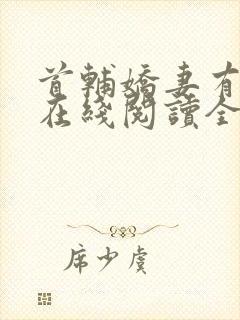 首輔嬌妻有
在綫閱讀全
席少虞